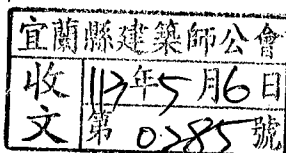 宜蘭縣建築師公會
收文
113年5月6日
第0285號